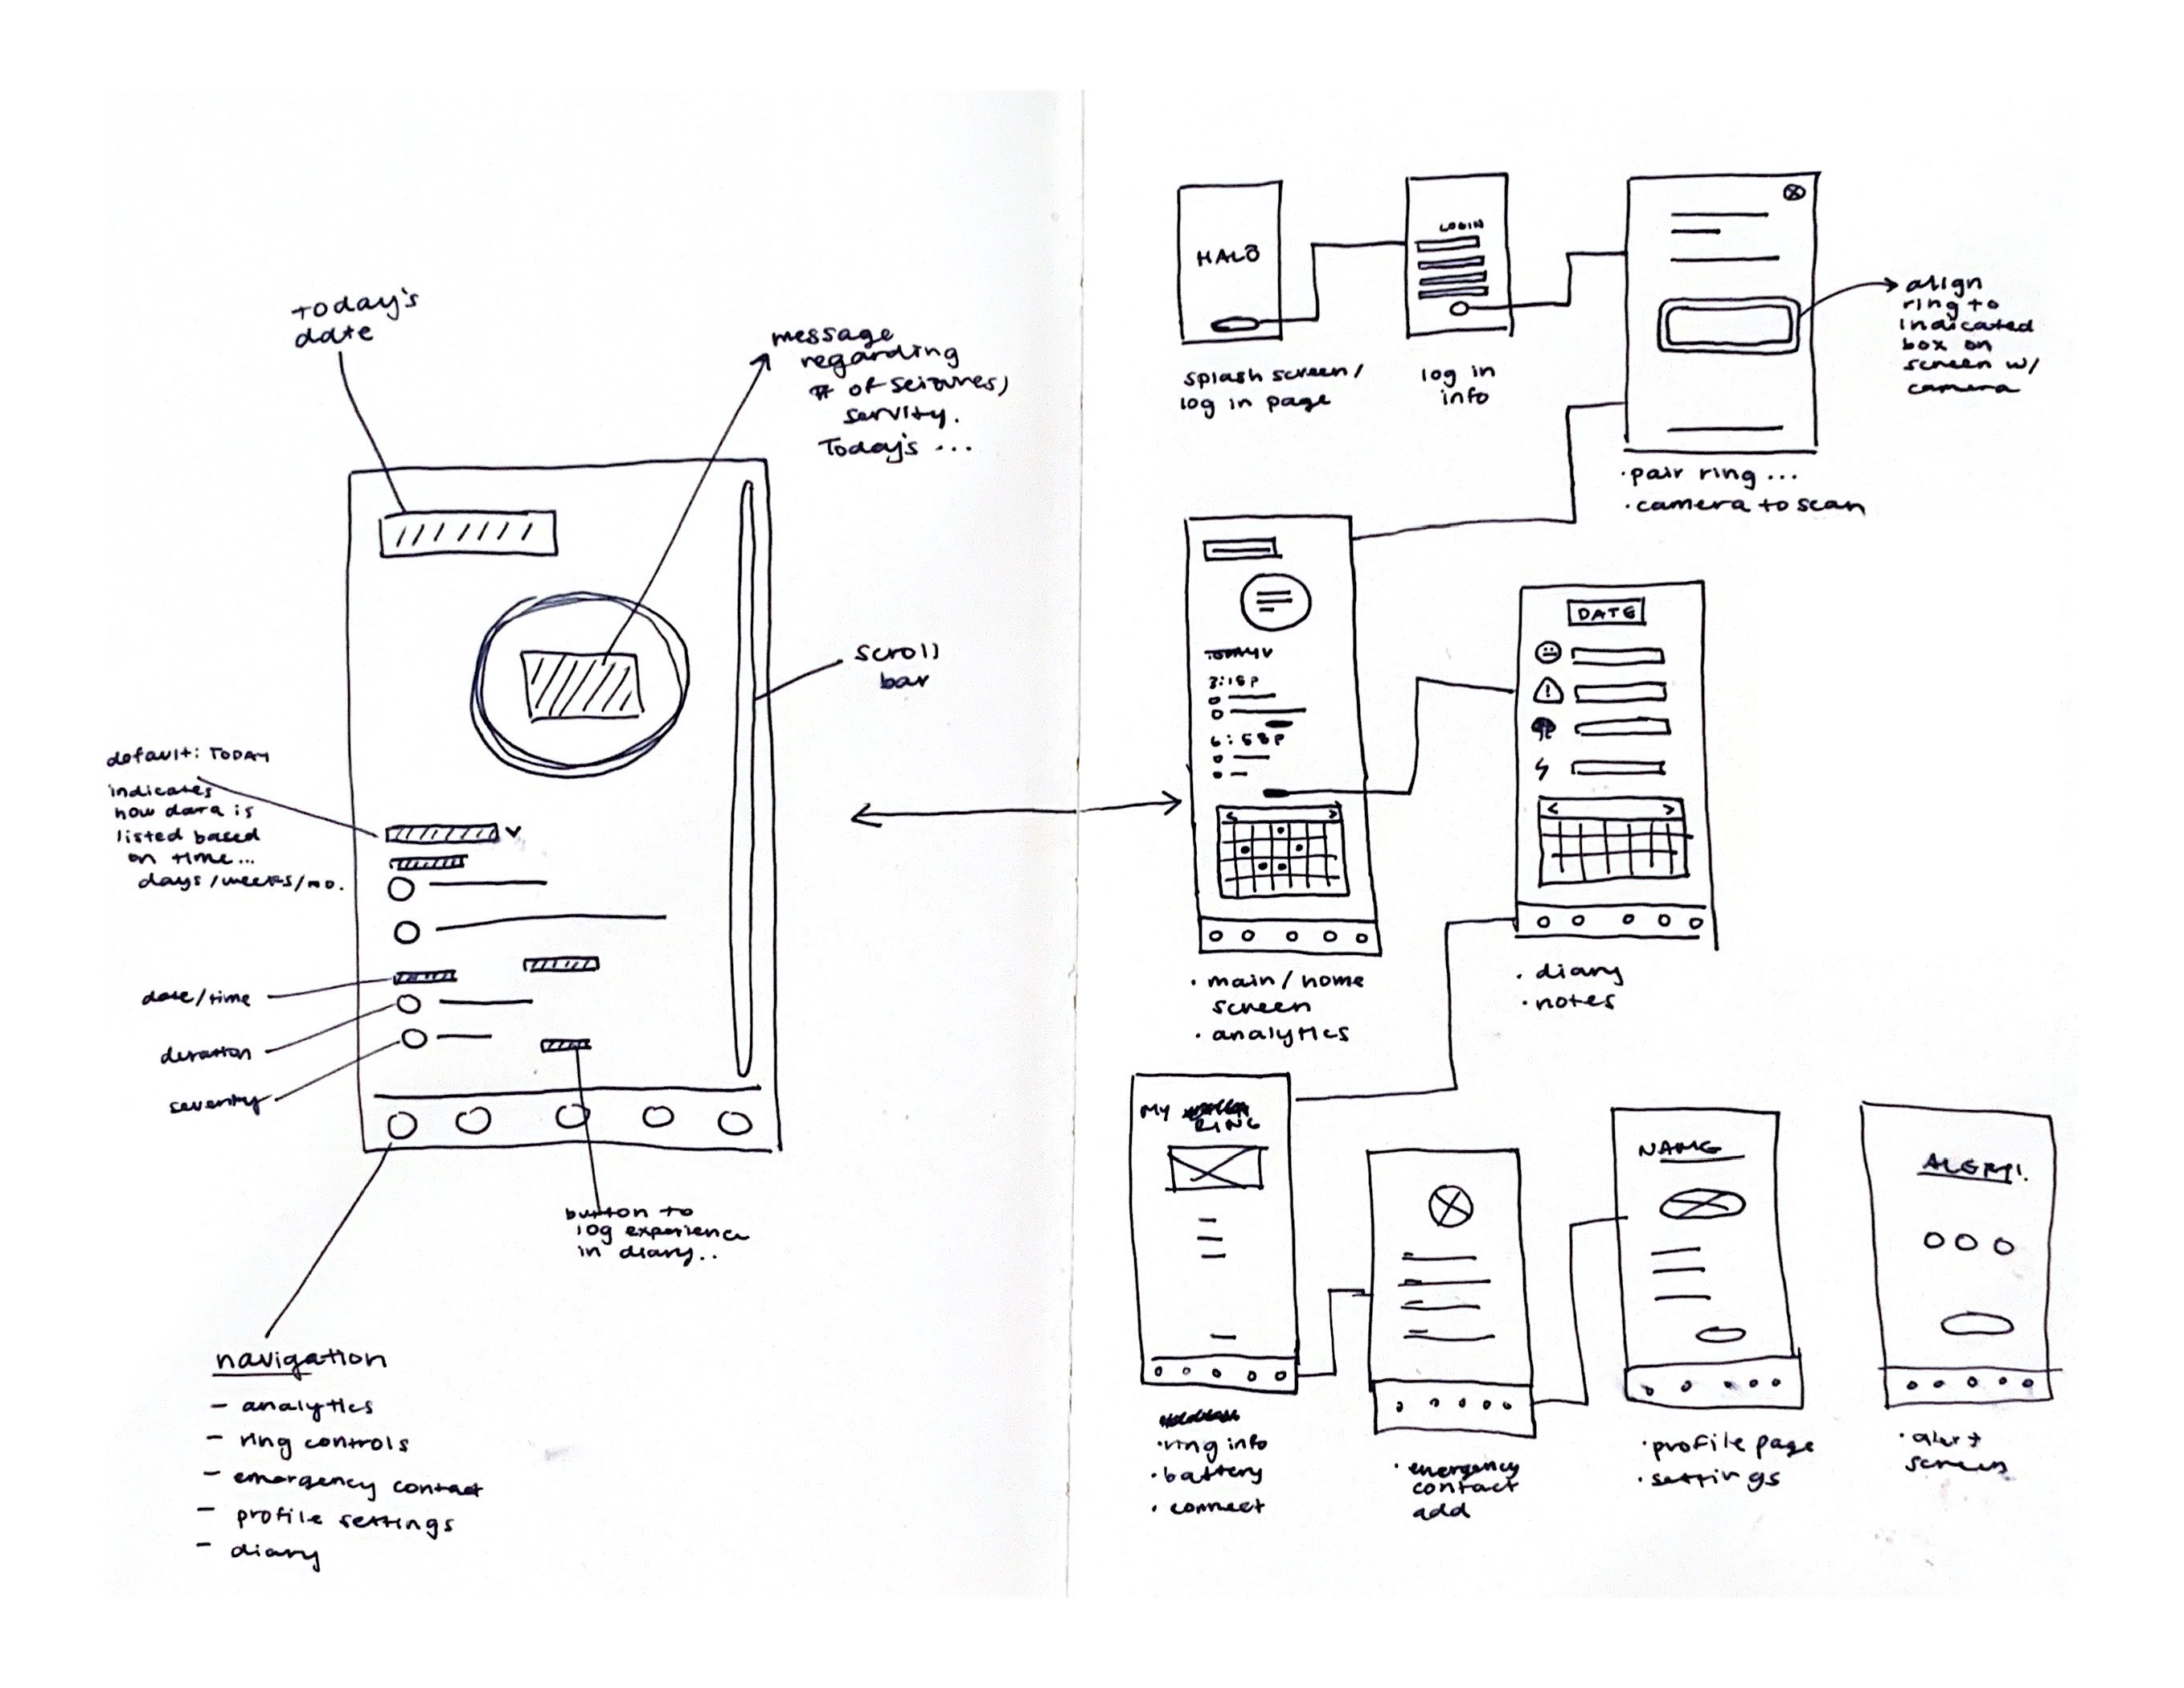 today's
date
message
regarding
# of seizures,
servity.
Today's ...
scroll
bar
default: TODAY
indicates
how dara is
listed based
on time...
days/weeks/mo.
date/time
duration
severity
button to
log experience
in diary..
navigation
- analytics
- ring controls
- emergency contact
- profile settings
- diary
HALO
splash screen/
log in page
LOGIN
log in
info
align
ring to
indicated
box on
screen w/
camera
• pair ring ...
• camera to scan
TODAY v
3:15P
6:58P
• main/home
screen
• analytics
DATE
• diary
• notes
MY
RING
• ring info
• battery
• connect
• emergency
contact
add
NAME
• profile page
• settings
ALERT!
• alert
screen